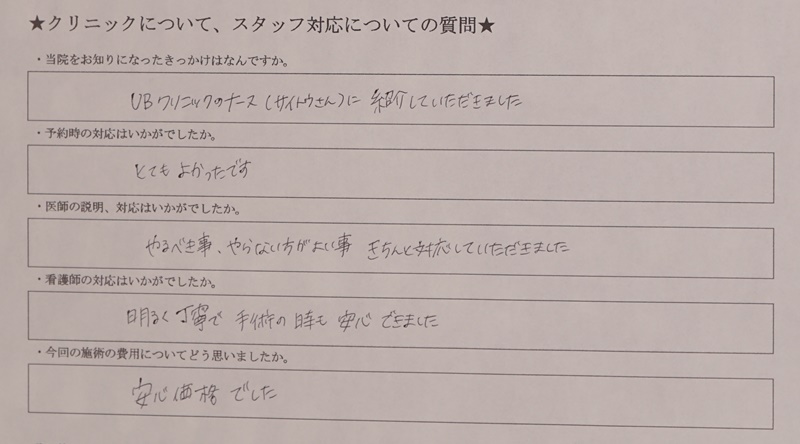 ★クリニックについて、スタッフ対応についての質問★
・当院をお知りになったきっかけはなんですか。
UBクリニックのナース(サイトウさん)に 紹介していただきました
・予約時の対応はいかがでしたか。
とても よかったです
・医師の説明、対応はいかがでしたか。
やるべき事、やらない方がよい事 きちんと対応していただきました
・看護師の対応はいかがでしたか。
明るく 丁寧で 手術の時も 安心 できました
・今回の施術の費用についてどう思いましたか。
安心価格 でした